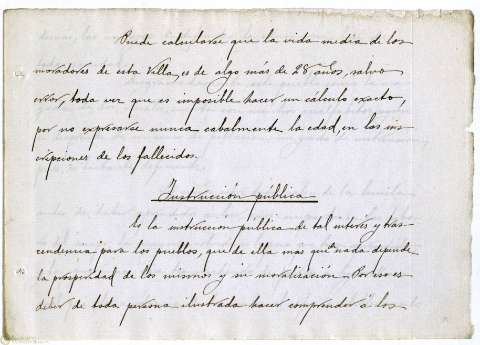 Puede calcularse que la vida media de los
moradores de esta Villa, es de algo más de 28 años, salvo
error, toda vez que es imposible hacer un cálculo exacto,
por no expresarse nunca cabalmente la edad, en las ins
cripciones de los fallecidos.
Instrucción pública
Es la instruccion publica de tal interés y tras-
cendencia para los pueblos, que de ella más que nada depende
la prosperidad de los mismos y su moralización. Por eso es
deber de toda persona ilustrada hacer comprender á los